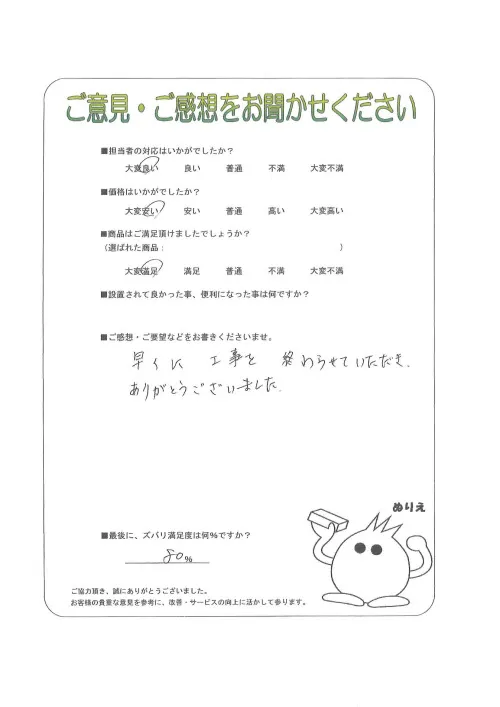 ご意見・ご感想をお聞かせください
■担当者の対応はいかがでしたか？
大変良い 良い 普通 不満 大変不満
■価格はいかがでしたか？
大変安い 安い 普通 高い 大変高い
■商品はご満足頂けましたでしょうか？
（選ばれた商品： ）
大変満足 満足 普通 不満 大変不満
■設置されて良かった事、便利になった事は何ですか？
■ご感想・ご要望などをお書きくださいませ。
早くに 工事を 終わらせていただき、
ありがとうございました。
ぬりえ
■最後に、ズバリ満足度は何%ですか？
80%
ご協力頂き、誠にありがとうございました。
お客様の貴重な意見を参考に、改善・サービスの向上に活かして参ります。